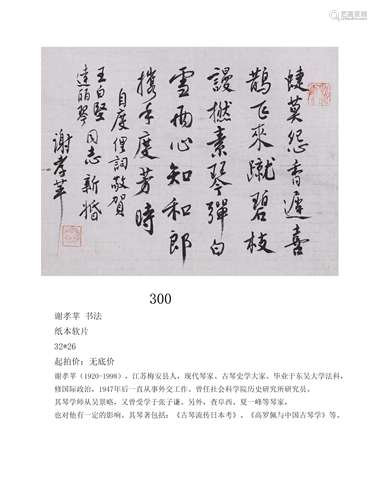 蜨莫怨香遲喜
鵲飞來蹴碧枝
謾撚素琴彈白
雪两心知和郎
攜手度芳時
自度俚詞敬賀
王白堅
達丽琴 同志新婚
谢孝苹
300
谢孝苹 书法
纸本软片
32*26
起拍价：无底价
谢孝苹（1920-1998），江苏海安县人，现代琴家、古琴史学大家。毕业于东吴大学法科，
修国际政治，1947年后一直从事外交工作。曾任社会科学院历史研究所研究员。
其琴学师从吴景略，又曾受学于张子谦。另外，查阜西、夏一峰等琴家，
也对他有一定的影响。其琴著包括：《古琴流传日本考》、《高罗佩与中国古琴学》等。